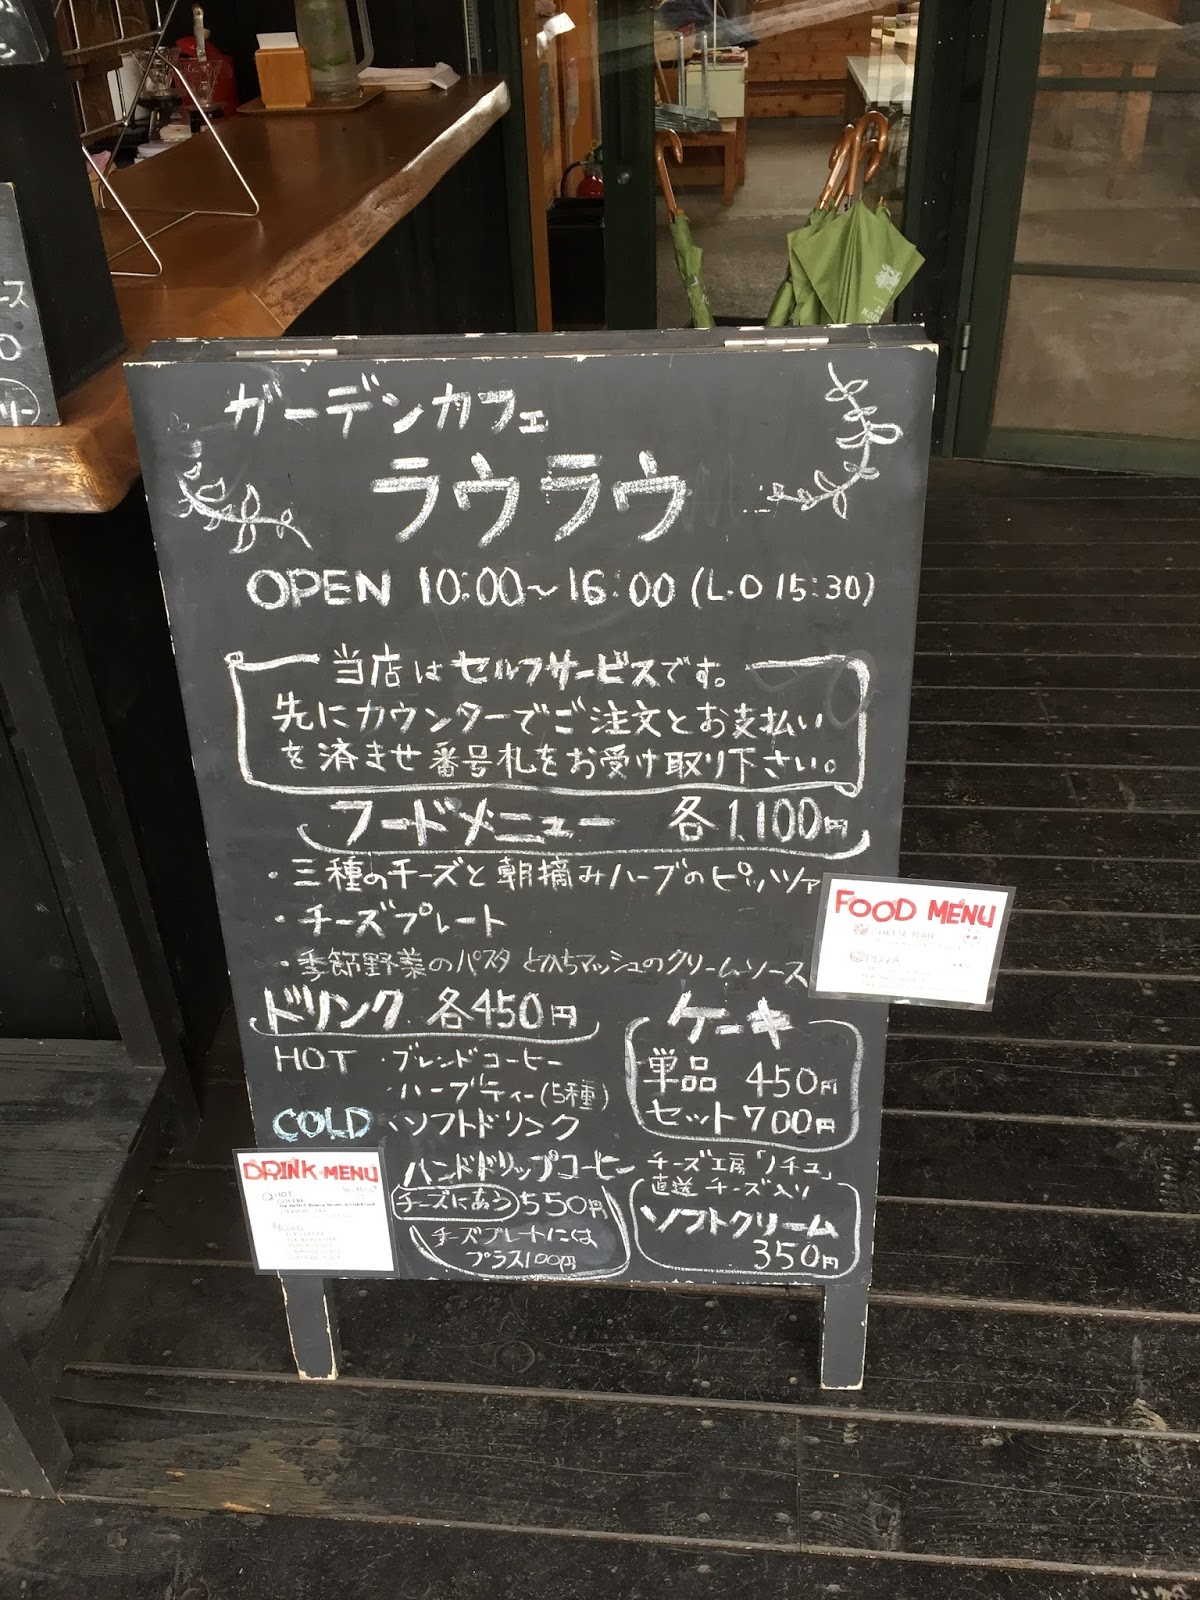 ガーデンカフェ
ラウラウ
OPEN 10:00～16:00 (L.O 15:30)
当店はセルフサービスです。
先にカウンターでご注文とお支払い
を済ませ番号札をお受け取り下さい。
フードメニュー 各1,100円
・三種のチーズと朝摘みハーブのピッツァ
・チーズプレート
・季節野菜のパスタ とかちマッシュのクリームソース
FOOD MENU
ドリンク 各450円
HOT ・ブレンドコーヒー
・ハーブティー(5種)
COLD ・ソフトドリンク
ケーキ
単品 450円
セット 700円
DRINK MENU
HOT
ハンドドリップコーヒー
チーズにあう 550円
チーズプレートには
プラス100円
チーズ工房「ノチュ」
直送 チーズ入り
ソフトクリーム
350円